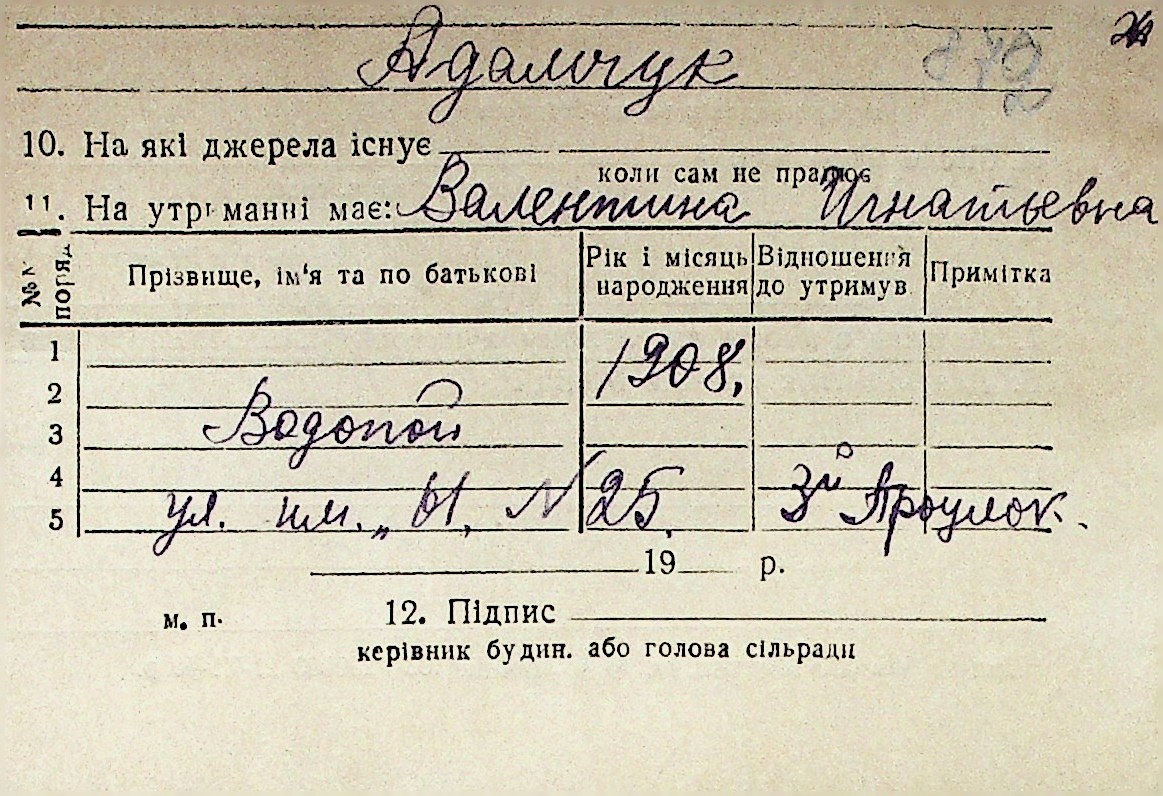 Адамчук
10. На які джерела існує
коли сам не працює
11. На утриманні має: Валентина Игнатьевна
№№ поряд. Прізвище, ім'я та по батькові Рік і місяць народження Відношення до утримув. Примітка
1
1908,
2
3 Водопой
4
5 ул. им. „Ы, № 25, 3й Проулок.
19 р.
м. п. 12. Підпис
керівник будин. або голова сільради